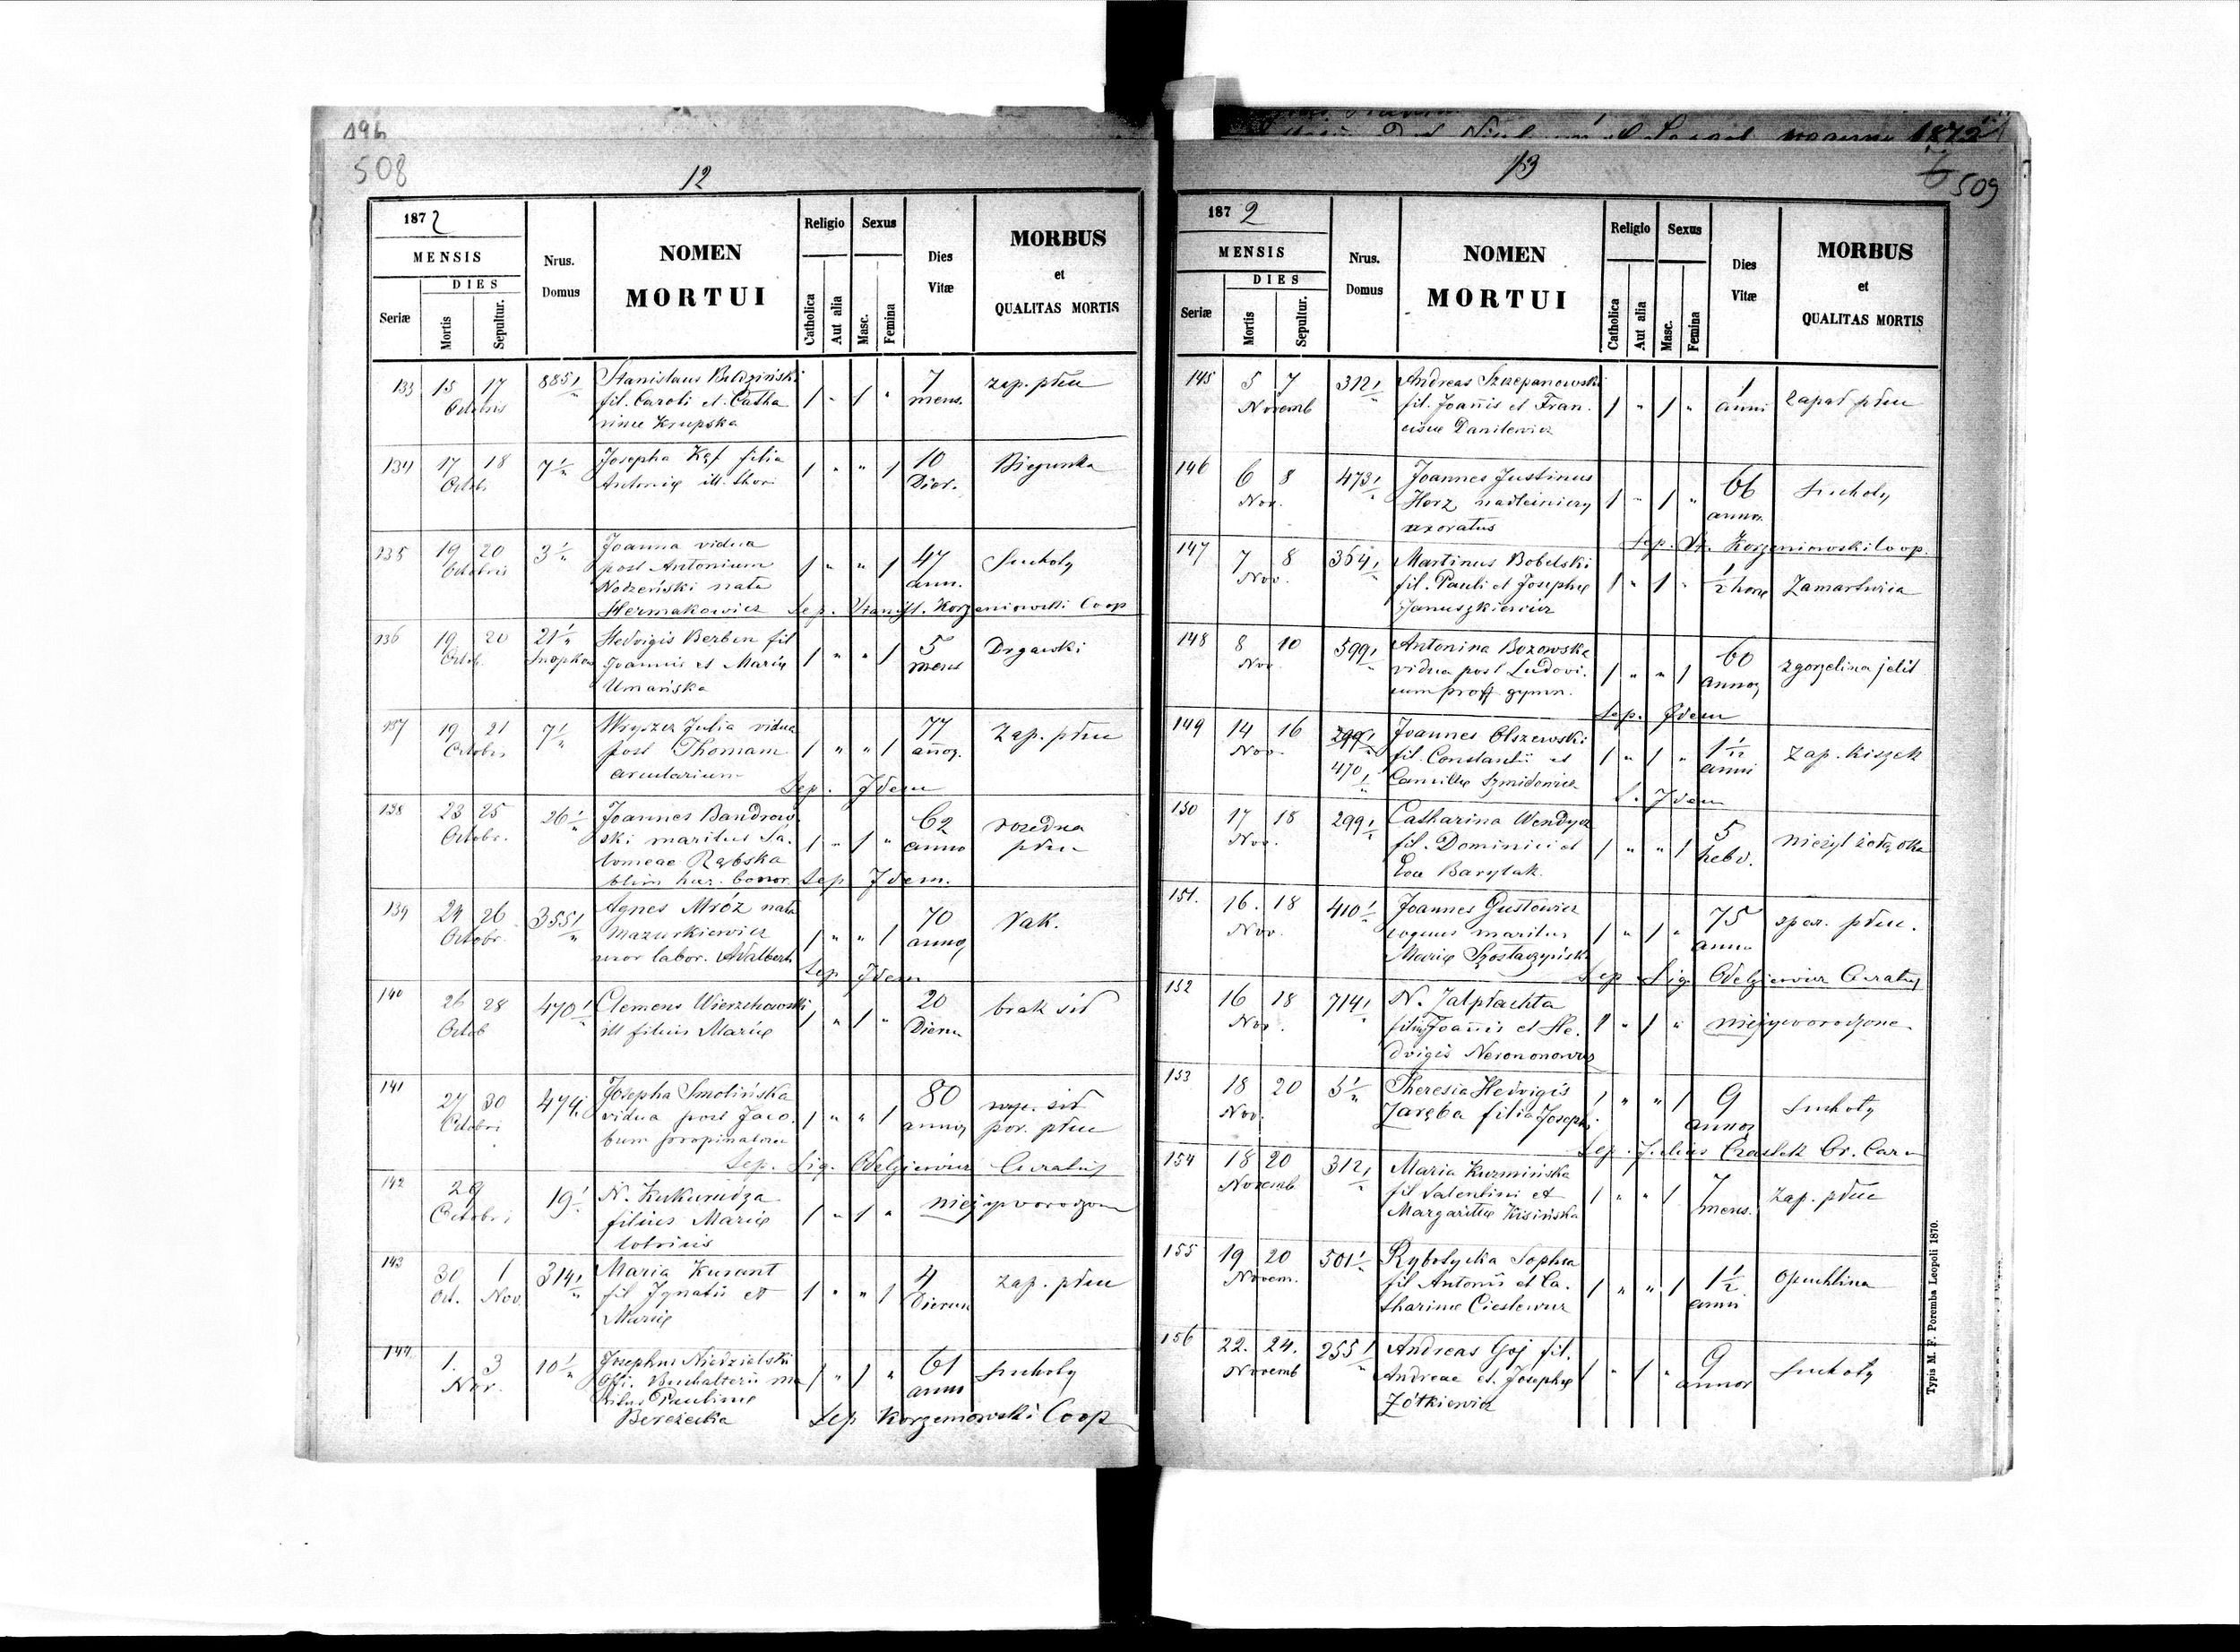 196
508
12
1872
MENSIS
DIES
Seriæ
Mortis
Sepultur.
Nrus.
Domus
NOMEN
MORTUI
Religio
Sexus
Catholica
Aut alia
Masc.
Femina
Dies
Vitæ
MORBUS
et
QUALITAS MORTIS
133 15 17 885 Stanislaus Budziński 7 zap. płuc
Octobris fil. Caroli et Catha 1 " 1 " mens.
rinae Krupska
134 17 18 7 Josepha Kęf filia 1 " " 1 10 Biegunka
Octob. Antoniæ ill. thori Dier.
135 19 20 3 Joanna vidua 47 Suchoty
Octobris post Antonium 1 " " 1 ann.
nata
Hermakowicz Sep. Stanisl. Korzeniowski Coop
136 19 20 21 Hedvigis Berben fil 5 Drgawki
Octob. Joannis et Mariæ 1 " " 1 mens
Umańska
137 19 21 7 Julia vidua 77 Zap. płuc
Octobris post Thomam 1 " " 1 annoz.
arcularium
Sep. Idem
138 23 25 26 Joannes Bandrow 62 rozedma
Octobr. ski maritus Sa. 1 " 1 " anno płuc
lomeae Rąbska
bonor. Sep Idem.
139 24 26 355 Agnes Mróz nata 70 Rak.
Octobr. Mazurkiewicz 1 " " 1 annoz
uxor labor. Adalberti
Sep Idem
140 26 28 470 Clemens Wierzchowski 20 brak sił
Octob ill filius Mariæ 1 " 1 " Dierum
141 27 30 474 Josepha Smolińska 80 wyc. sił
Octobri vidua post Jaco. 1 " " 1 annoz por. płuc
bum propinatorem
Sep. Sig. Odelgiewicz Curatus
142 29 19 N. Kukurudza nieżyworodzone
Octobri filius Mariæ 1 " 1 "
lotricis
143 30 1 314 Maria Kurant 4 zap. płuc
Oct. Nov. fil Ignatii et 1 " " 1 Dierum
Mariæ
144 1. 3 10 Josephus Niedzielski 61 Suchoty
Nov. Offi. Buchalterii ma 1 " 1 " anno
ritus Paulinæ
Bereżecka Sep Korzeniowski Coop
1872
13
509
1872
MENSIS
DIES
Seriæ
Mortis
Sepultur.
Nrus.
Domus
NOMEN
MORTUI
Religio
Sexus
Catholica
Aut alia
Masc.
Femina
Dies
Vitæ
MORBUS
et
QUALITAS MORTIS
145 5 7 312 Andreas Szczepanowski 1 zapal płuc
Novemb fil. Joannis et Fran. 1 " 1 " anni
ciscæ Danilewicz
146 6 8 473 Joannes Justinus 66 Suchoty
Nov. Herz 1 " 1 " annoz.
uxoratus
Sep. St. Korzeniowski Coop.
147 7 8 364 Martinus Bobelski
Nov. fil. Pauli et Josephæ 1 " 1 " ½ horæ Zamartwica
Januszkiewicz
148 8 10 599 Antonina Bozowska 60 zgorzelina jelit
Nov vidua post Ludovi. 1 " " 1 annoz
cum proff gymn.
Sep. Idem
149 14 16 299 Joannes Olszewski zap. kiszek
Nov. 470 fil. Constantii et 1 " 1 " anni
Camillæ Szmidowicz
S. Idem
150 17 18 299 Catharina Wendycz 5 nieżyt żołądka
Nov. fil. Dominici et 1 " " 1 hebd.
Eva Barylak.
151. 16. 18 410 Joannes Gustowicz 75 spar. płuc.
Nov. coquus maritus 1 " 1 " anno
Mariæ
Sep Sig Odelgiewicz Curatus
152 16 18 714 N. Zalplachta
Nov. filius Joannis et He. 1 " 1 " nieżyworodzone
dvigis
153 18 20 5 Theresia Hedvigis 1 " " 1 9 Suchoty
Nov. Zaręba filia Josephi annoz
Sep. Julius
154 18 20 312 Maria Kuzmińska 7 zap. płuc
Novemb fil Valentini et 1 " " 1 mens.
Margarittæ Kisińska
155 19 20 501 Rybotycka Sophia 1½ opuchlina
Novem. fil Antonii et Ca. 1 " " 1 anni
tharinæ Cieslewicz
156 22. 24. 255 Andreas Goj fil. 9 Suchoty
Novemb Andreae et Josephæ 1 " 1 " annor
Żółkiewicz
Typis M. F. Poremba Leopoli 1870.